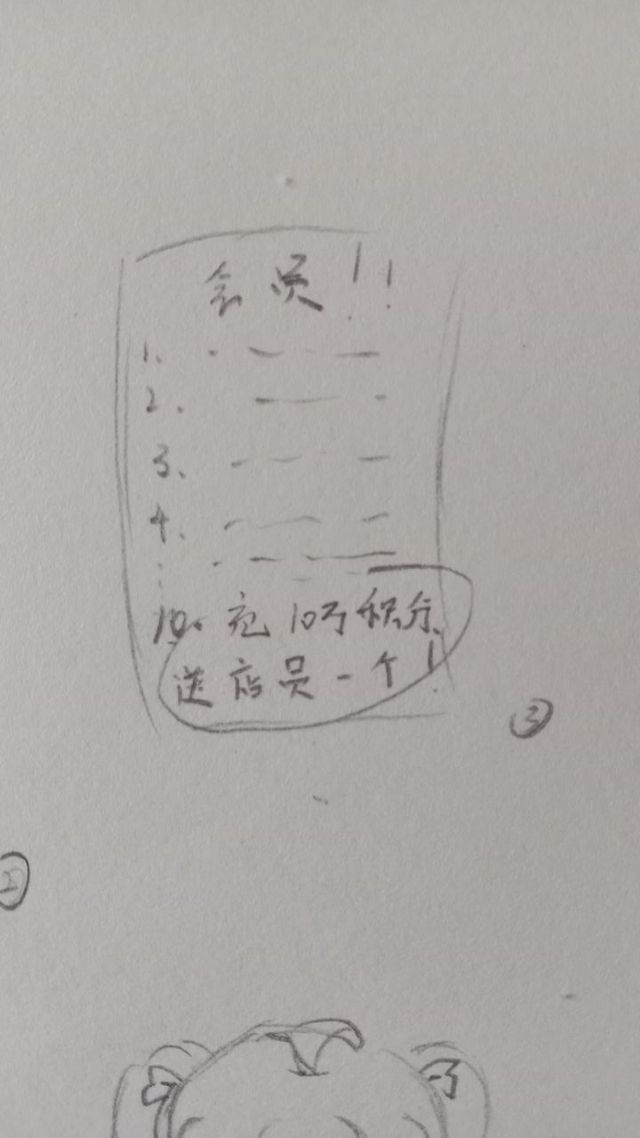 会员！！
1、
2、
3、
4、
10、充10万积分
送店员一个！
③
②